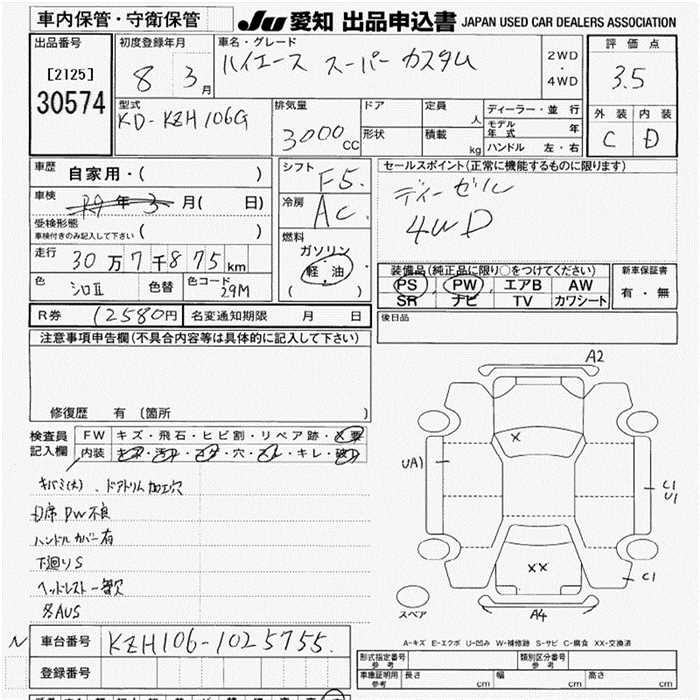 車内保管・守衛保管 JU 愛知 出品申込書 JAPAN USED CAR DEALERS ASSOCIATION
出品番号 初度登録年月 車名・グレード 評価点
[2125] 8 3月 ハイエース スーパー カスタム 2WD・4WD 3.5
30574 型式 排気量 ドア 定員 人 ディーラー・並行 外装 内装
KD-KZH106G 3000cc 形状 積載 kg モデル年式 年 C D
ハンドル 左・右
車歴 自家用・( ) シフト F5. セールスポイント(正常に機能するものに限ります)
車検 R9年3月( 日) 冷房 AC. ディーゼル
受検形態 4WD
車検付きのみ記入して下さい ( ) 燃料
走行 30万7千875km ガソリン 装備品(純正品に限り○をつけてください) 新車保証書
色 シロII 色替 色コード 29M 軽油 PS PW エアB AW 有・無
( ) SR ナビ TV カワシート
R券 12580円 名変通知期限 月 日 後日品
注意事項申告欄(不具合内容等は具体的に記入して下さい)
修復歴 有(箇所 )
検査員 FW キズ・飛石・ヒビ割・リペア跡・X要
記入欄 内装 キズ・汚れ・コゲ・穴・スレ・キレ・破れ
キバミ(大)、ドアトリム加工穴
右席PW不良
ハンドルカバー有
下廻りS
ヘッドレスト一部欠
外AUS
A2
X
UA1
C1
U1
XX
C1
スペア
A4
A-キズ E-エクボ U-凹み W-補修跡 S-サビ C-腐食 XX-交換済
N 車台番号 KZH106-1025755.
登録番号
形式指定番号 参考 類別区分番号 参考
車庫証明用 参考 長さ cm 幅 cm 高さ cm